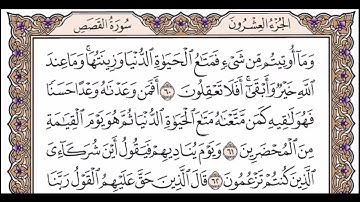 سُورَةُ القَصَصِ الجُزْءُ العِشْرُونَ
وَمَا أُوتِيتُم مِّن شَىْءٍ فَمَتَـٰعُ ٱلْحَيَوٰةِ ٱلدُّنْيَا وَزِينَتُهَا ۚ وَمَا عِندَ
ٱللَّهِ خَيْرٌ وَأَبْقَىٰٓ ۚ أَفَلَا تَعْقِلُونَ ٦٠ أَفَمَن وَعَدْنَـٰهُ وَعْدًا حَسَنًا
فَهُوَ لَـٰقِيهِ كَمَن مَّتَّعْنَـٰهُ مَتَـٰعَ ٱلْحَيَوٰةِ ٱلدُّنْيَا ثُمَّ هُوَ يَوْمَ ٱلْقِيَـٰمَةِ
مِنَ ٱلْمُحْضَرِينَ ٦١ وَيَوْمَ يُنَادِيهِمْ فَيَقُولُ أَيْنَ شُرَكَآءِىَ
ٱلَّذِينَ كُنتُمْ تَزْعُمُونَ ٦٢ قَالَ ٱلَّذِينَ حَقَّ عَلَيْهِمُ ٱلْقَوْلُ رَبَّنَا